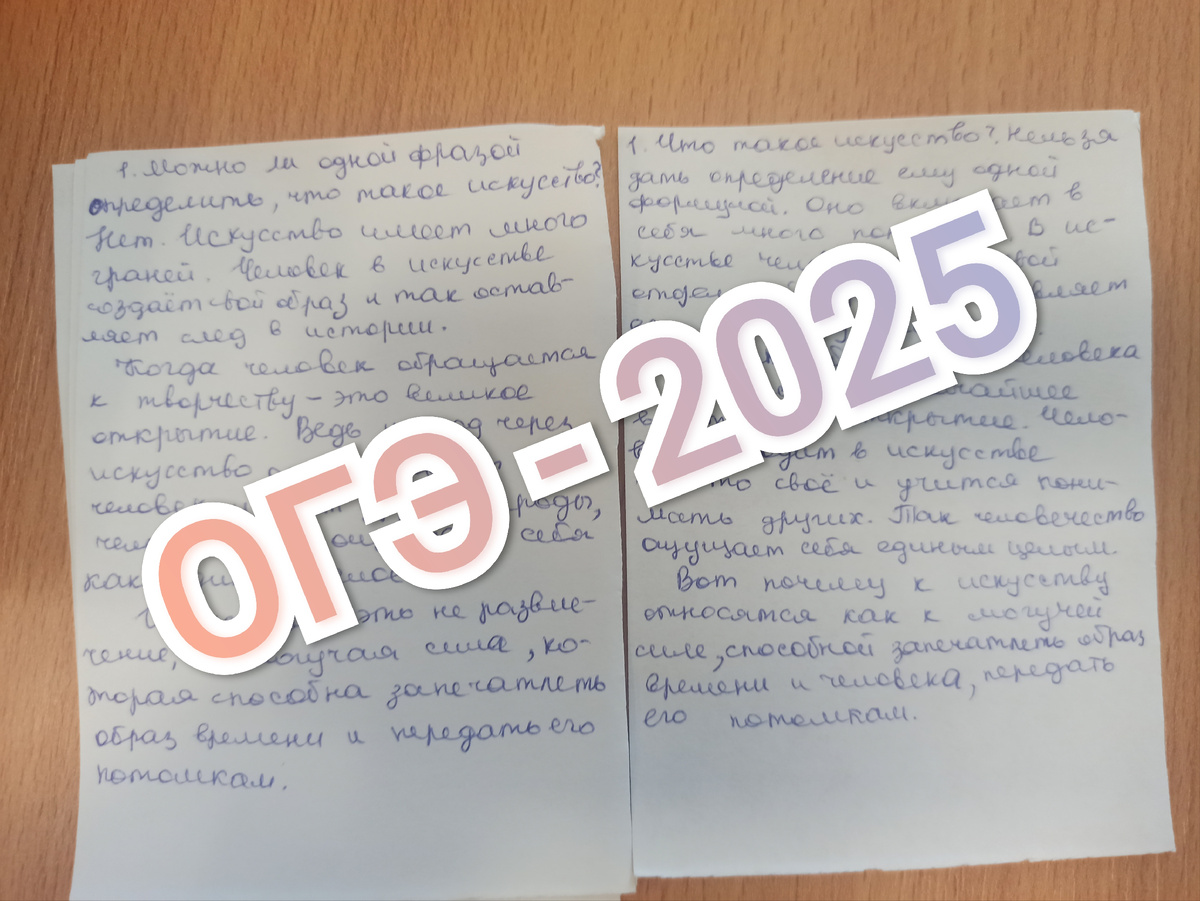 1. Можно ли одной фразой
определить, что такое искусство?
Нет. Искусство имеет много
граней. Человек в искусстве
создаёт свой образ и так остав-
ляет след в истории.
Когда человек обращается
к творчеству – это великое
открытие. Ведь через
искусство
человек
себя
как
это не развле-
чение, могучая сила, ко-
торая способна запечатлеть
образ времени и передать его
потомкам.
1. Что такое искусство? Нельзя
дать определение ему одной
формулой. Оно включает в
себя много В ис-
кусстве
человека
открытие. Чело-
в искусстве
своё и учится пони-
мать других. Так человечество
ощущает себя единым целым.
Вот почему к искусству
относятся как к могучей
силе, способной запечатлеть образ
времени и человека, передать
его потомкам.
ОГЭ - 2025